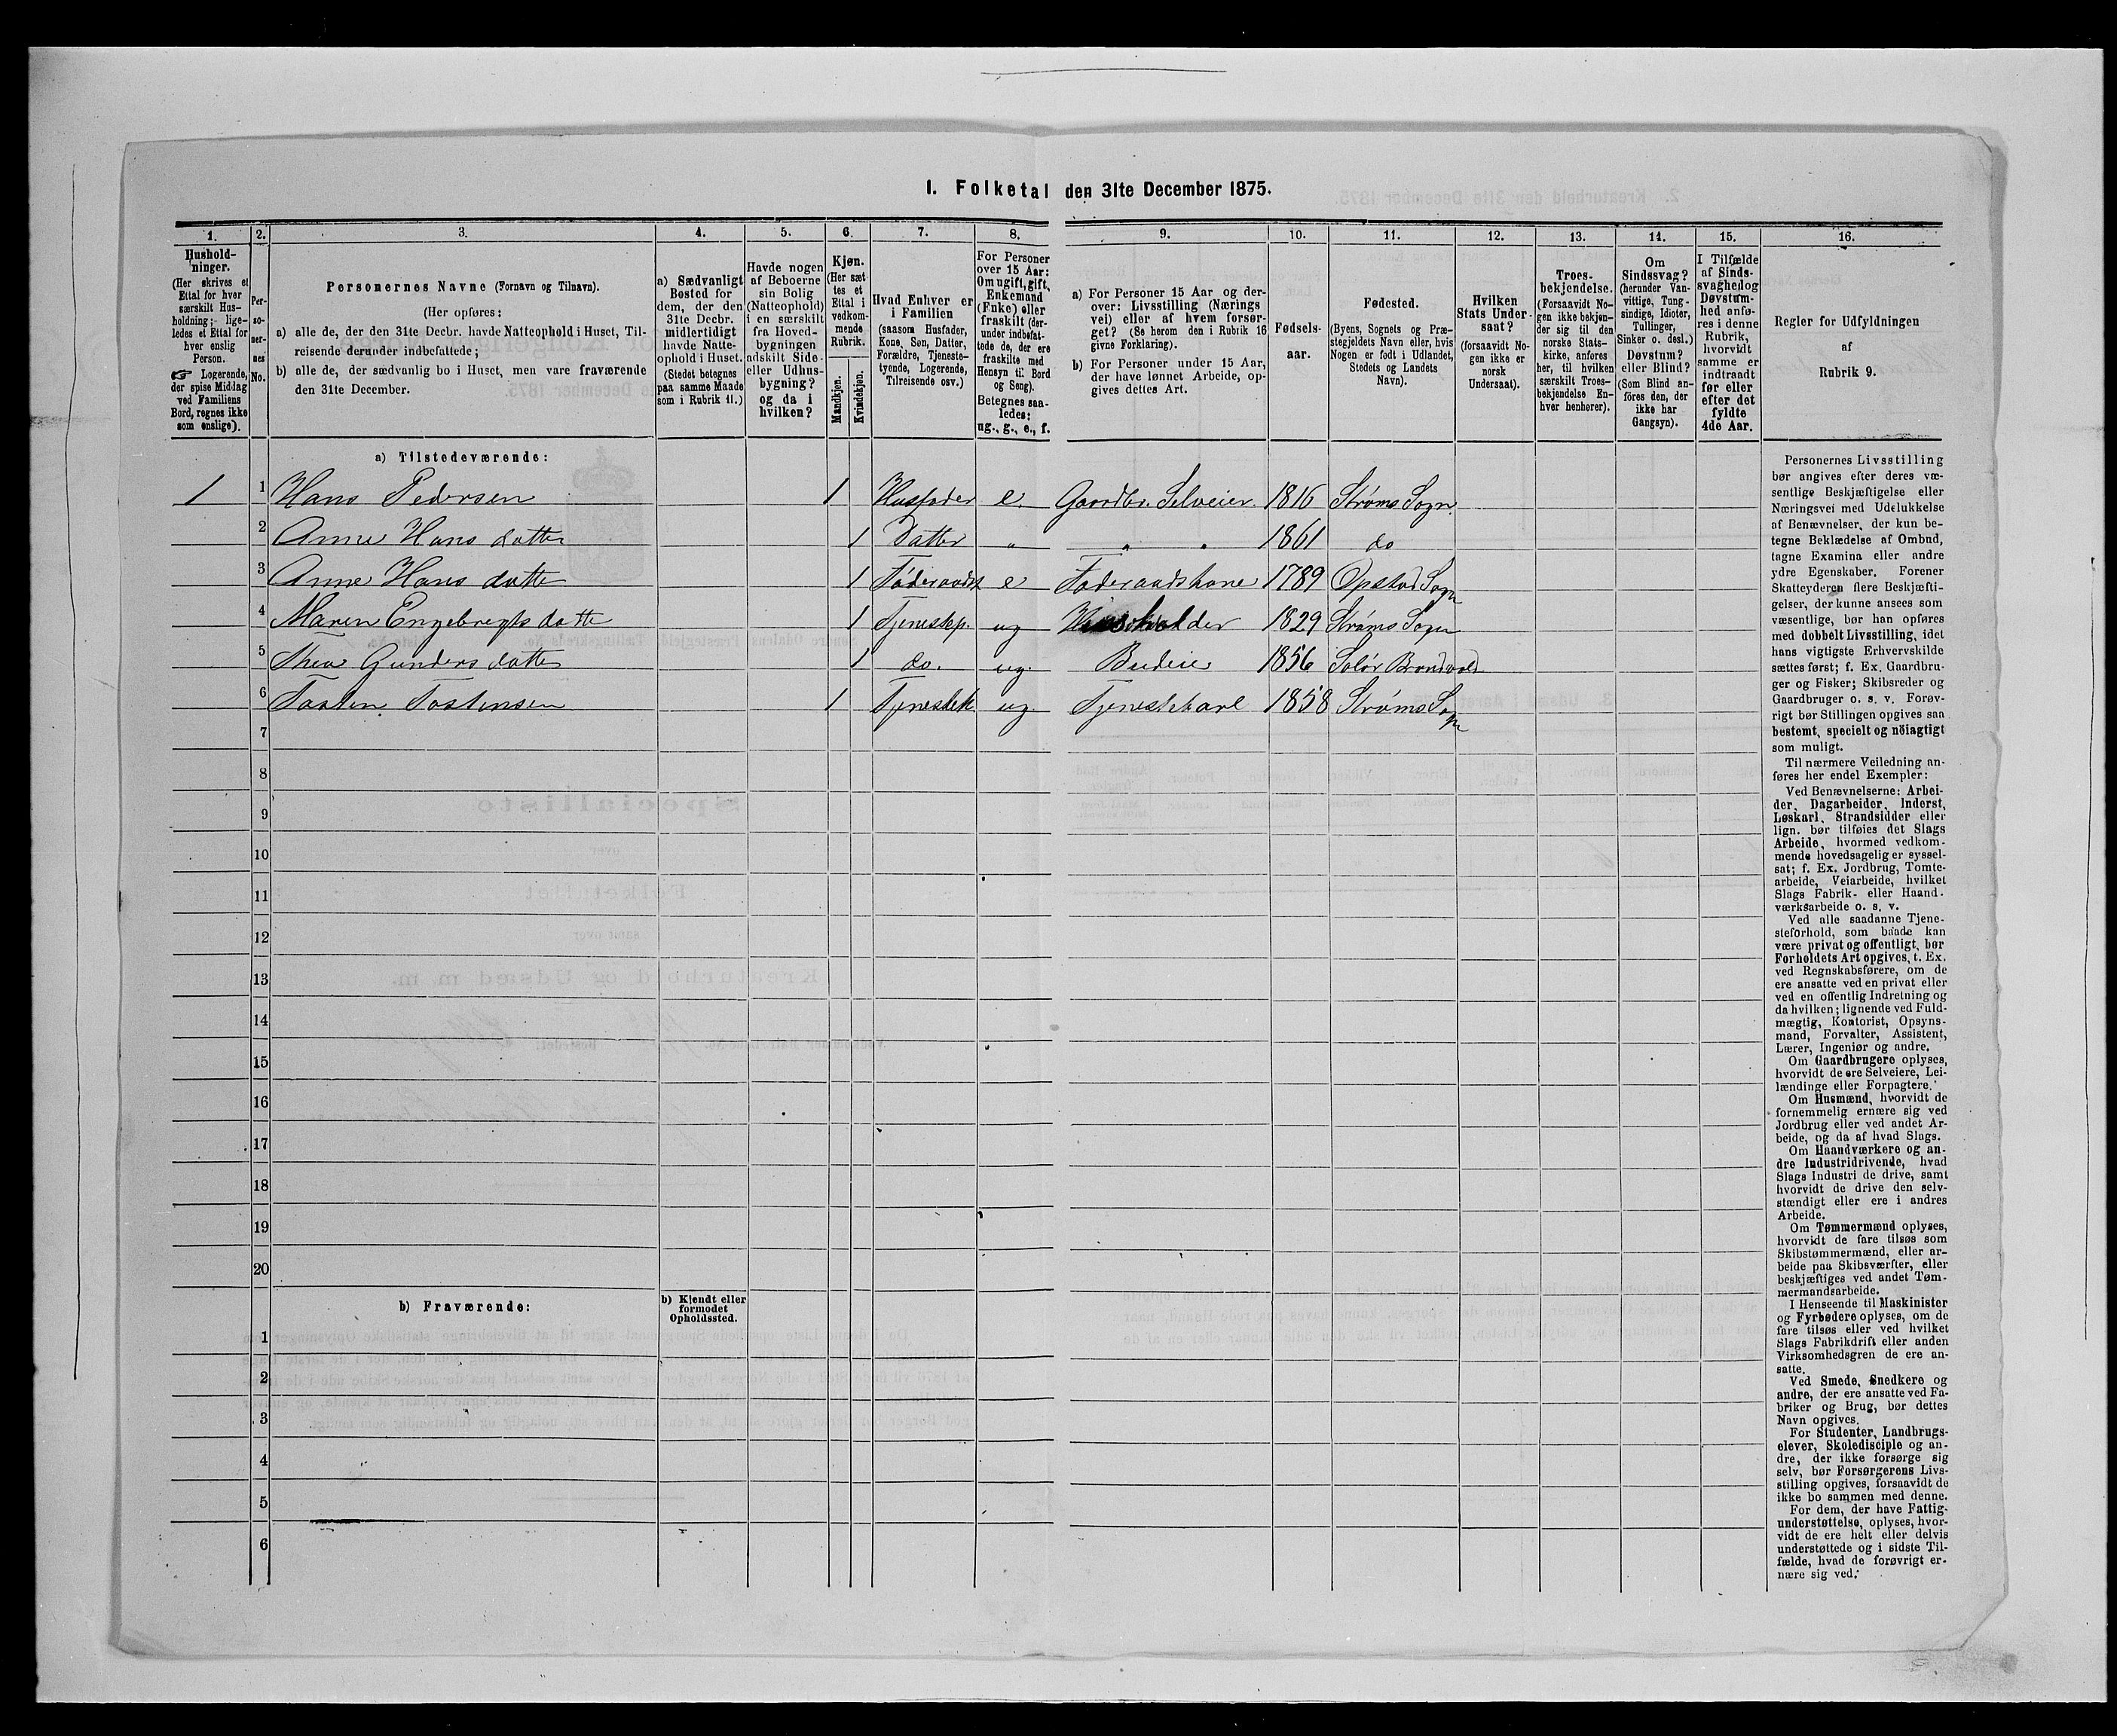 I. Folketal den 31te December 1875.
1. 2. 3. 4. 5. 6. 7. 8. 9. 10. 11. 12. 13. 14. 15. 16.
Hushold-
ninger.
(Her skrives et
Ettal for hver
særskilt Hus-
holdning; lige-
ledes et Ettal for
hver enslig
Person.
☞ Logerende,
der spise Middag
ved Familiens
Bord, regnes ikke
som enslige).
Per-
so-
ner-
nes
No.
Personernes Navne (Fornavn og Tilnavn).
(Her opføres:
a) alle de, der den 31te Decbr. havde Natteophold i Huset, Til-
reisende derunder indbefattede;
b) alle de, der sædvanlig bo i Huset, men vare fraværende
den 31te December.
a) Sædvanligt
Bosted for
dem, der den
31te Decbr.
midlertidigt
havde Natte-
ophold i Huset.
(Stedet betegnes
paa samme Maade
som i Rubrik 11.)
Havde nogen
af Beboerne
sin Bolig
(Natteophold)
i en særskilt
fra Hoved-
bygningen
adskilt Side-
eller Udhus-
bygning?
og da i
hvilken?
Kjøn.
(Her sæt
tes et
Ettal i
vedkom-
mende
Rubrik.
Mandkjøn.
Kvindekjøn.
Hvad Enhver er
i Familien
(saasom Husfader,
Kone, Søn, Datter,
Forældre, Tjeneste-
tyende, Logerende,
Tilreisende osv.)
For Personer
over 15 Aar:
Om ugift, gift,
Enkemand
(Enke) eller
fraskilt (der-
under indbefat-
tede de, der ere
fraskilte med
Hensyn til Bord
og Seng).
Betegnes saa-
ledes:
ug., g., e., f.
a) For Personer 15 Aar og der-
over: Livsstilling (Nærings
vei) eller af hvem forsør-
get? (Se herom den i Rubrik 16
givne Forklaring).
b) For Personer under 15 Aar,
der have lønnet Arbeide, op-
gives dettes Art.
Fødsels-
aar.
Fødested.
(Byens, Sognets og Præ-
stegjeldets Navn eller, hvis
Nogen er født i Udlandet,
Stedets og Landets
Navn).
Hvilken
Stats Under-
saat?
(forsaavidt No-
gen ikke er
norsk
Undersaat).
Troes-
bekjendelse.
(Forsaavidt No-
gen ikke bekjen-
der sig til den
norske Stats-
kirke, anføres
her, til hvilken
særskilt Troes-
bekjendelse En-
hver henhører).
Om
Sindssvag?
(herunder Van-
vittige, Tung-
sindige, Idioter,
Tullinger,
Sinker o. desl.)
Døvstum?
eller Blind?
(Som Blind an-
føres den, der
ikke har
Gangsyn).
I Tilfælde
af Sinds-
svaghed og
Døvstum-
hed anfø-
res i denne
Rubrik,
hvorvidt
samme er
indtraadt
før eller
efter det
fyldte
4de Aar.
Regler for Udfyldningen
af
Rubrik 9.
a) Tilstedeværende:
1 1 Hans Pedersen 1 Husfader e. Gaardbr. Selveier. 1816 Strøms Sogn
2 Anne Hans datter 1 Datter „ „ „ 1861 do
3 Anne Hans datte 1 Føderaadsk e Føderaadskone 1789 Opstad Sogn
4 Maren Engebregts datte 1 Tjenestep. ug Husholder 1829 Strøms Sogn
5 Thea Gunders datte 1 do. ug. Budeie 1856 Solør Brandvold
6 Tosten Tostensen 1 Tjenestek ug Tjenestekarl 1858 Strøms Sogn
7
8
9
10
11
12
13
14
15
16
17
18
19
20
b) Fraværende:
b) Kjendt eller
formodet
Opholdssted.
1
2
3
4
5
6
Personernes Livsstilling
bør angives efter deres væ-
sentlige Beskjæftigelse eller
Næringsvei med Udelukkelse
af Benævnelser, der kun be-
tegne Beklædelse af Ombud,
tagne Examina eller andre
ydre Egenskaber. Forener
Skatteyderen flere Beskjæfti-
gelser, der kunne ansees som
væsentlige, bør han opføres
med dobbelt Livsstilling, idet
hans vigtigste Erhvervskilde
sættes først; f. Ex. Gaardbru-
ger og Fisker; Skibsreder og
Gaardbruger o. s. v. Forøv-
rigt bør Stillingen opgives saa
bestemt, specielt og nöiagtigt
som muligt.
Til nærmere Veiledning an-
føres her endel Exempler:
Ved Benævnelserne: Arbei-
der, Dagarbeider, Inderst,
Løskarl, Strandsidder eller
lign. bør tilføies det Slags
Arbeide, hvormed vedkom-
mende hovedsagelig er syssel-
sat; f. Ex. Jordbrug, Tomte-
arbeide, Veiarbeide, hvilket
Slags Fabrik- eller Haand-
værksarbeide o. s. v.
Ved alle saadanne Tjene-
steforhold, som baade kan
være privat og offentligt, bør
Forholdets Art opgives, t. Ex.
ved Regnskabsførere, om de
ere ansatte ved en privat eller
ved en offentlig Indretning og
da hvilken; lignende ved Fuld-
mægtig, Kontorist, Opsyns-
mand, Forvalter, Assistent,
Lærer, Ingeniør og andre.
Om Gaardbrugere oplyses,
hvorvidt de ere Selveiere, Lei-
lændinge eller Forpagtere.
Om Husmænd, hvorvidt de
fornemmelig ernære sig ved
Jordbrug eller ved andet Ar-
beide, og da af hvad Slags.
Om Haandværkere og an-
dre Industridrivende, hvad
Slags Industri de drive, samt
hvorvidt de drive den selv-
stændigt eller ere i andres
Arbeide.
Om Tømmermænd oplyses,
hvorvidt de fare tilsøs som
Skibstømmermænd, eller ar-
beide paa Skibsværfter, eller
beskjæftiges ved andet Tøm-
mermandsarbeide.
I Henseende til Maskinister
og Fyrbødere oplyses, om de
fare tilsøs eller ved hvilket
Slags Fabrikdrift eller anden
Virksomhedsgren de ere an-
satte.
Ved Smede, Snedkere og
andre, der ere ansatte ved Fa-
briker og Brug, bør dettes
Navn opgives.
For Studenter, Landbrugs-
elever, Skoledisciple og an-
dre, der ikke forsørge sig
selv, bør Forsørgerens Livs-
stilling opgives, forsaavidt de
ikke bo sammen med denne.
For dem, der have Fattig-
understøttelse, oplyses, hvor-
vidt de ere helt eller delvis
understøttede og i sidste Til-
fælde, hvad de forøvrigt er-
nære sig ved.